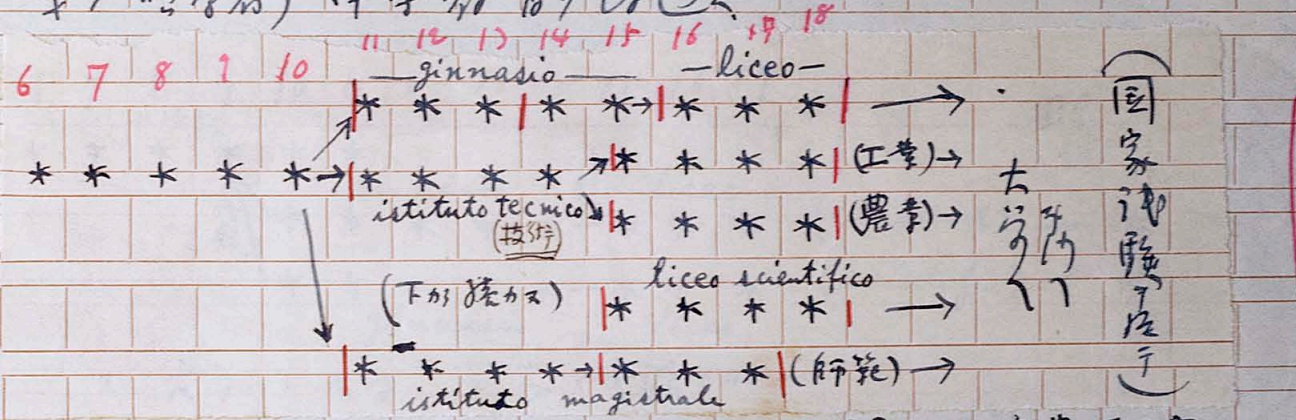 11 12 13 14 15 16 17 18
6 7 8 9 10
ginnasio liceo
* * * | * * → | * * * | →
* * * * * → | * * * * | * * * * | (工業) →
istituto tecnico
(技術)
| * * * * | (農業) →
liceo scientifico
(下カラ続カヌ)
| * * * * | →
| * * * * → | * * * | (師範) →
istituto magistrale
大学
(国家試験ヲ応テ)